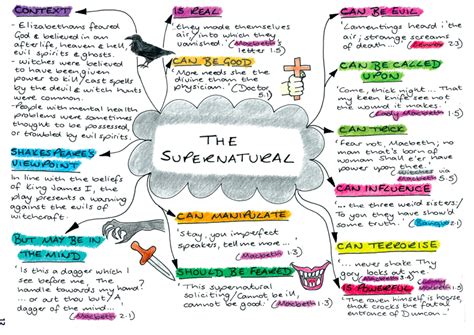 CONTEXT
- Elizabethans feared
God & believed in an
afterlife, heaven & hell,
evil spirits & ghosts.
- witches were believed
to have been given
power to kill/cast spells
by the devil & witch hunts
were common.
- People with mental health
problems were sometimes
thought to be possessed,
or troubled by evil spirits.
SHAKESPEARE'S
VIEWPOINT
In line with the beliefs
of King James I, the
play presents a warning
against the evils of
witchcraft.
BUT MAY BE IN
THE MIND
'Is this a dagger which I
see before me, The
handle towards my hand?
... or art thou but/A
dagger of the mind...'
(Macbeth 2.1)
IS REAL
'they made themselves
air, into which they
vanished.' (Macbeth's
letter 1.5)
CAN BE GOOD
'More needs she the
divine than the
physician.' (Doctor
5.1)
THE
SUPERNATURAL
CAN MANIPULATE
'Stay, you imperfect
speakers, tell me more...'
(Macbeth 1.3)
SHOULD BE FEARED
'This supernatural
soliciting/Cannot be ill,
cannot be good;'
(Macbeth 1.3)
CAN BE EVIL
'Lamentings heard i'the
air; strange screams
of death...' (Lennox
2.3)
CAN BE CALLED
UPON
'Come, thick night... That
my keen knife see not
the wound it makes.'
(Lady Macbeth 1.5)
CAN TRICK
'Fear not, Macbeth; no
man that's born of
woman Shall e'er have
power upon thee.'
(witches via
Macbeth 5.3)
CAN INFLUENCE
'... the three weird sisters/
To you they have show'd
some truth.' (Banquo
2.1)
CAN TERRORISE
'... never shake Thy
gory locks at me.'
(Macbeth 3.4)
IS POWERFUL
'The raven himself is hoarse,
that croaks the fatal
entrance of Duncan'
12